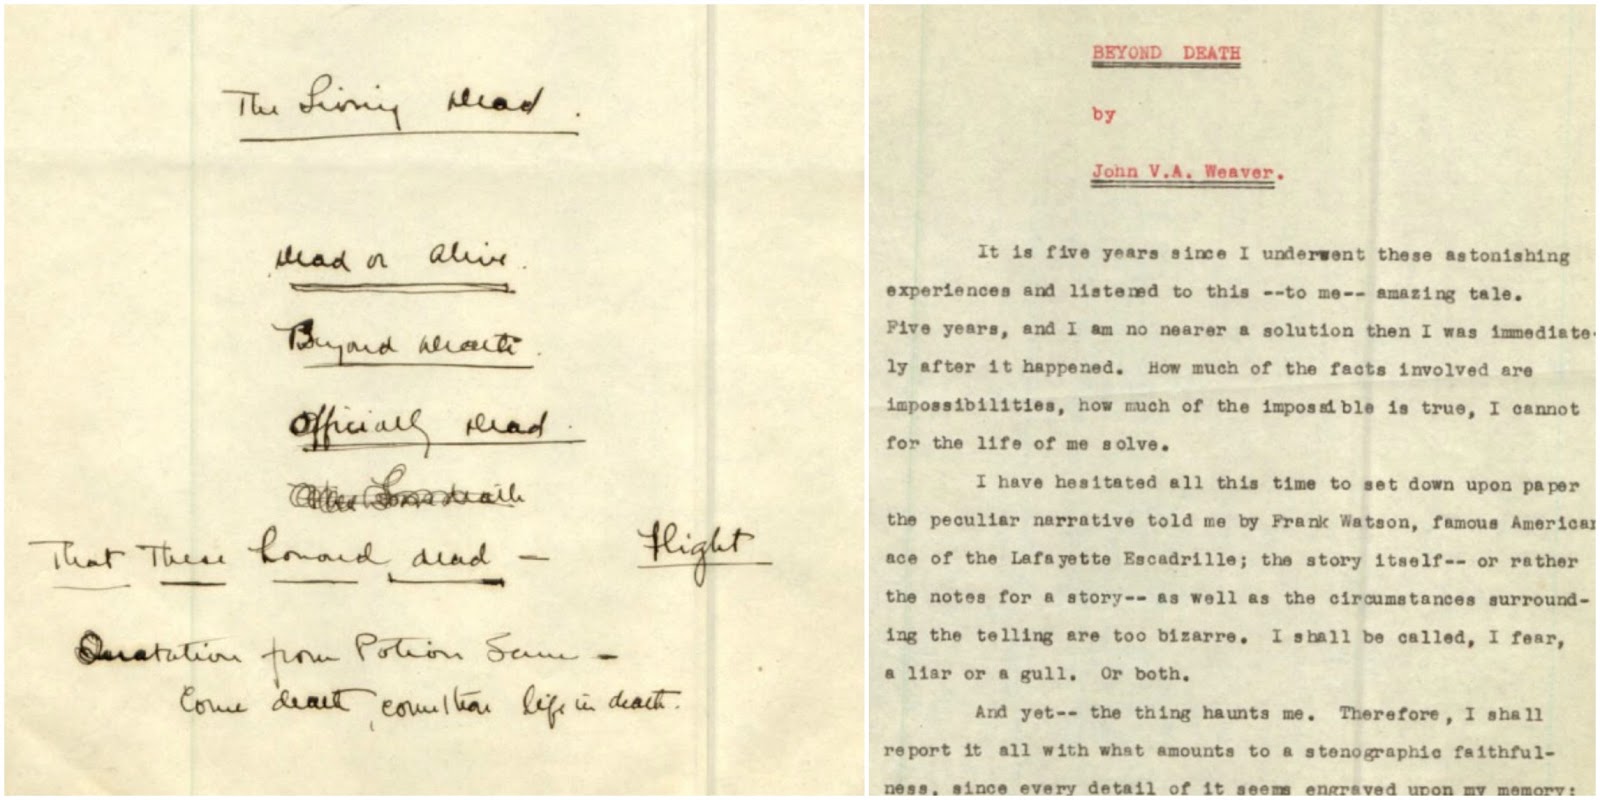 The Living Dead.
Dead or Alive.
Beyond Death.
Officially Dead.
That These Honored dead — Flight
Quotation from Potion Scene —
Come death, come thou life in death.
BEYOND DEATH
by
John V.A. Weaver.
It is five years since I underwent these astonishing
experiences and listened to this --to me-- amazing tale.
Five years, and I am no nearer a solution then I was immediate-
ly after it happened. How much of the facts involved are
impossibilities, how much of the impossible is true, I cannot
for the life of me solve.
I have hesitated all this time to set down upon paper
the peculiar narrative told me by Frank Watson, famous American
ace of the Lafayette Escadrille; the story itself-- or rather
the notes for a story-- as well as the circumstances surround-
ing the telling are too bizarre. I shall be called, I fear,
a liar or a gull. Or both.
And yet-- the thing haunts me. Therefore, I shall
report it all with what amounts to a stenographic faithful-
ness, since every detail of it seems engraved upon my memory: